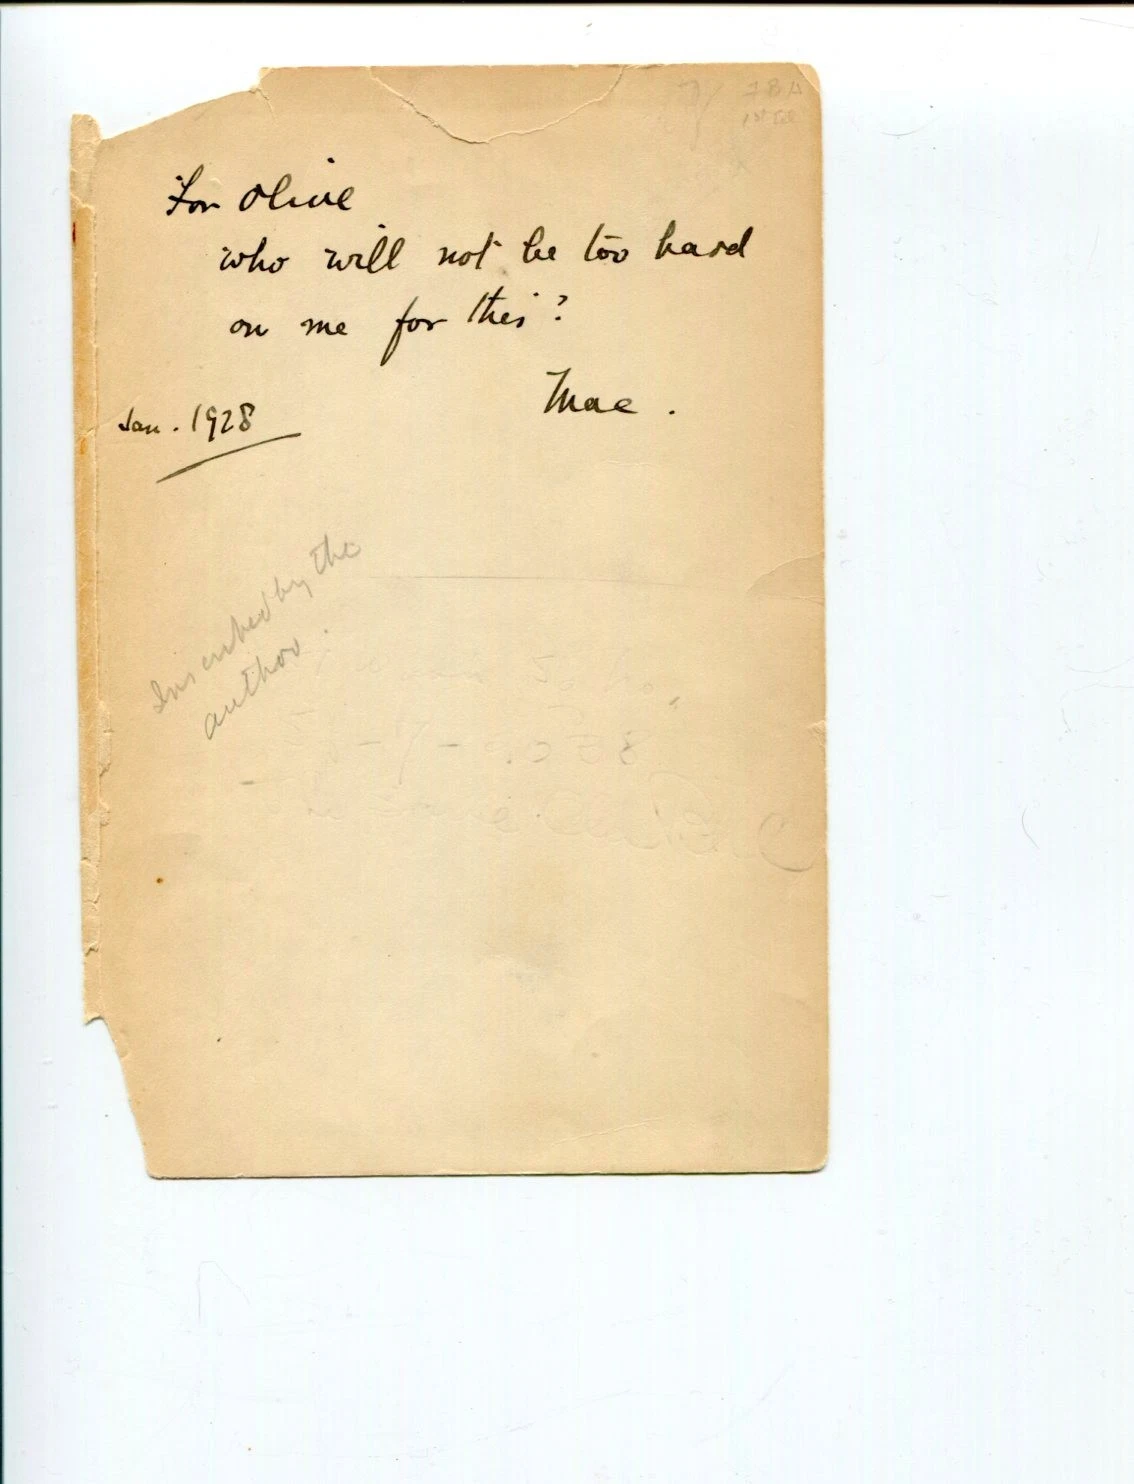 For Olive
who will not be too hard
on me for this?
Mac.
Jan. 1928
Inscribed by the
author.